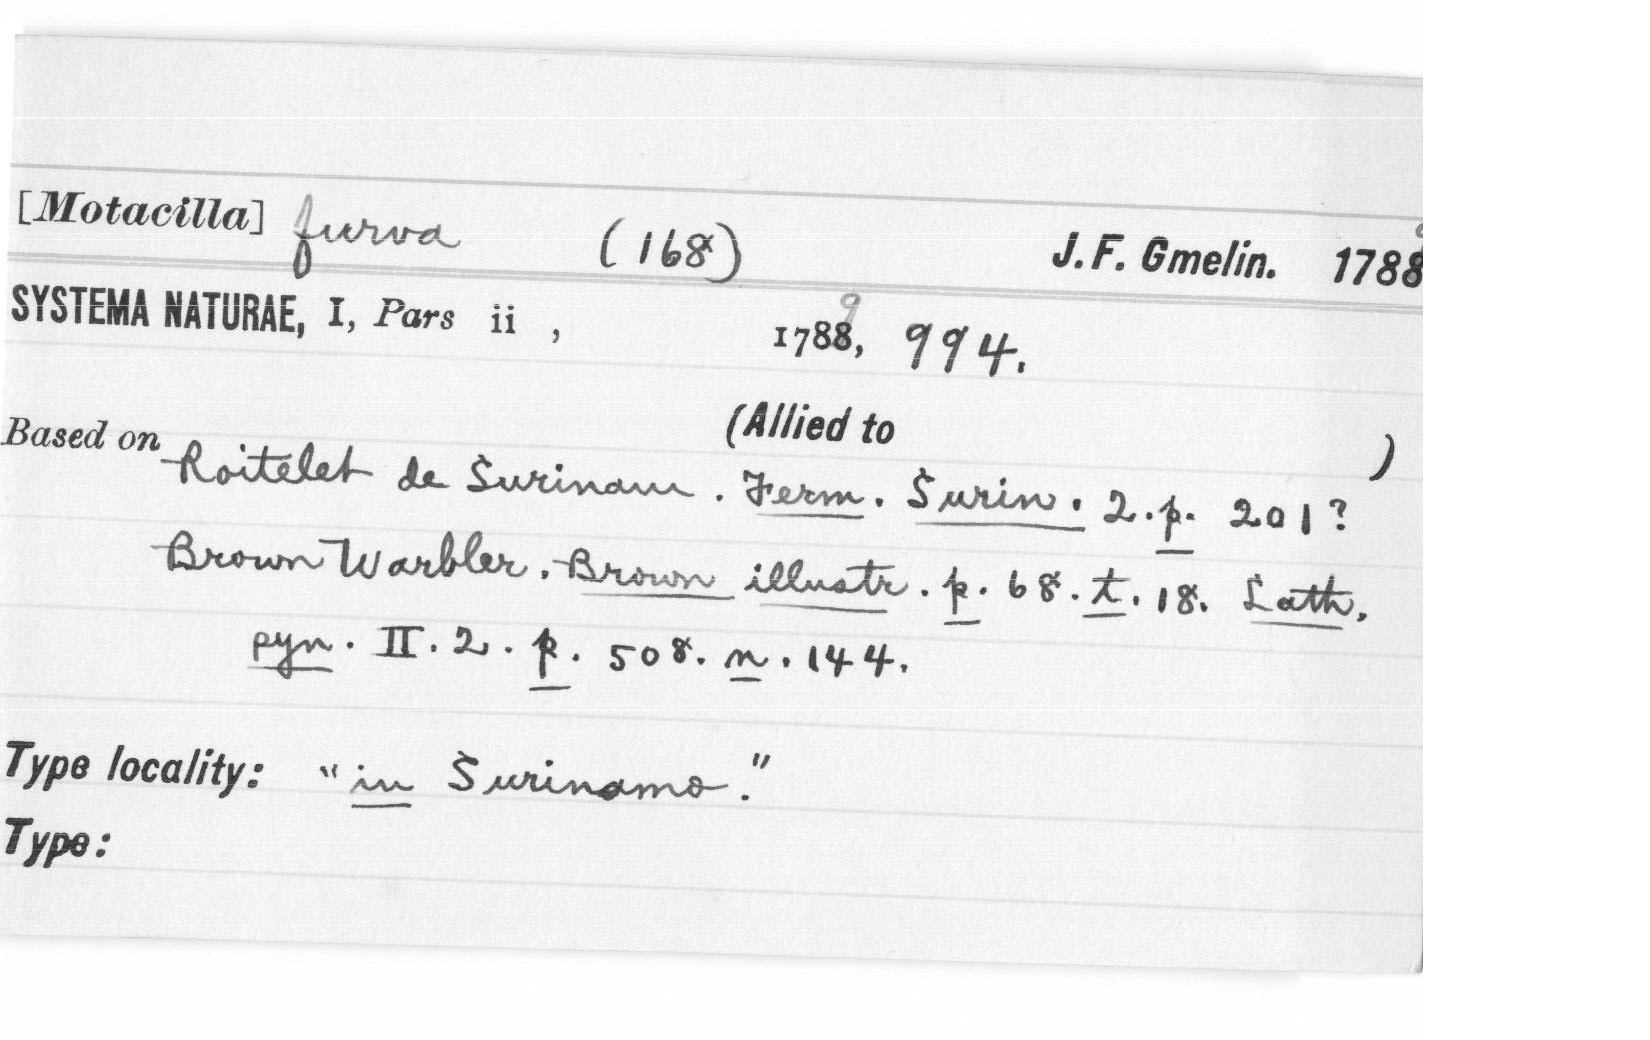 [Motacilla] furva (168) J. F. Gmelin. 1788
9
SYSTEMA NATURAE, I, Pars ii , 1788, 994.
(Allied to )
Based on Roitelet de Surinam. Ferm. Surin. 2. p. 201?
Brown Warbler. Brown illustr. p. 68. t. 18. Lath.
pyn. II. 2. p. 508. n. 144.
Type locality: "in Surinamo."
Type: